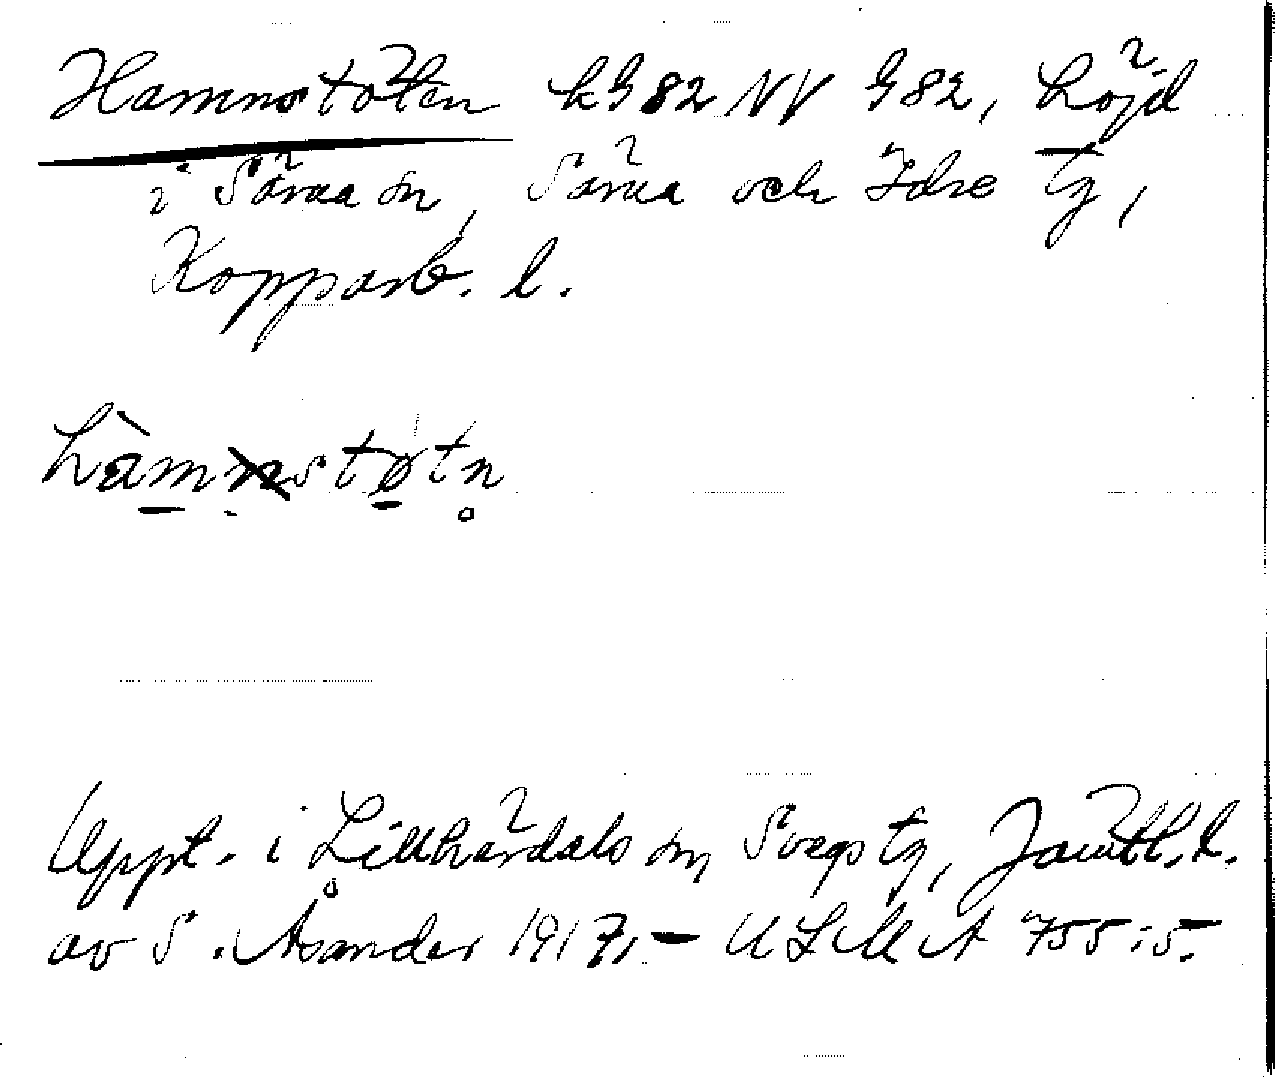 Hamnstöten kg 82 NV g 82, höjd
i Särna sn, Särna och Idre tg,
Kopparb. l.
hàmstøtn̥
Uppt. i Lillhärdals sn, Svegs tg, Jämtl. l.
av S. Åsander 1917. — ULMA 755:5.